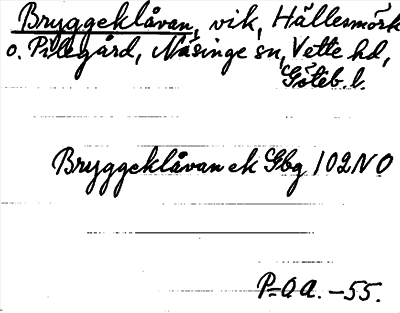 Bryggeklåvan, vik, Hällesmörk
o. Pilegård, Näsinge sn, Vette hd,
Göteb. l.
Bryggeklåvan ek Gbg 102 NO
P=AA. -55.